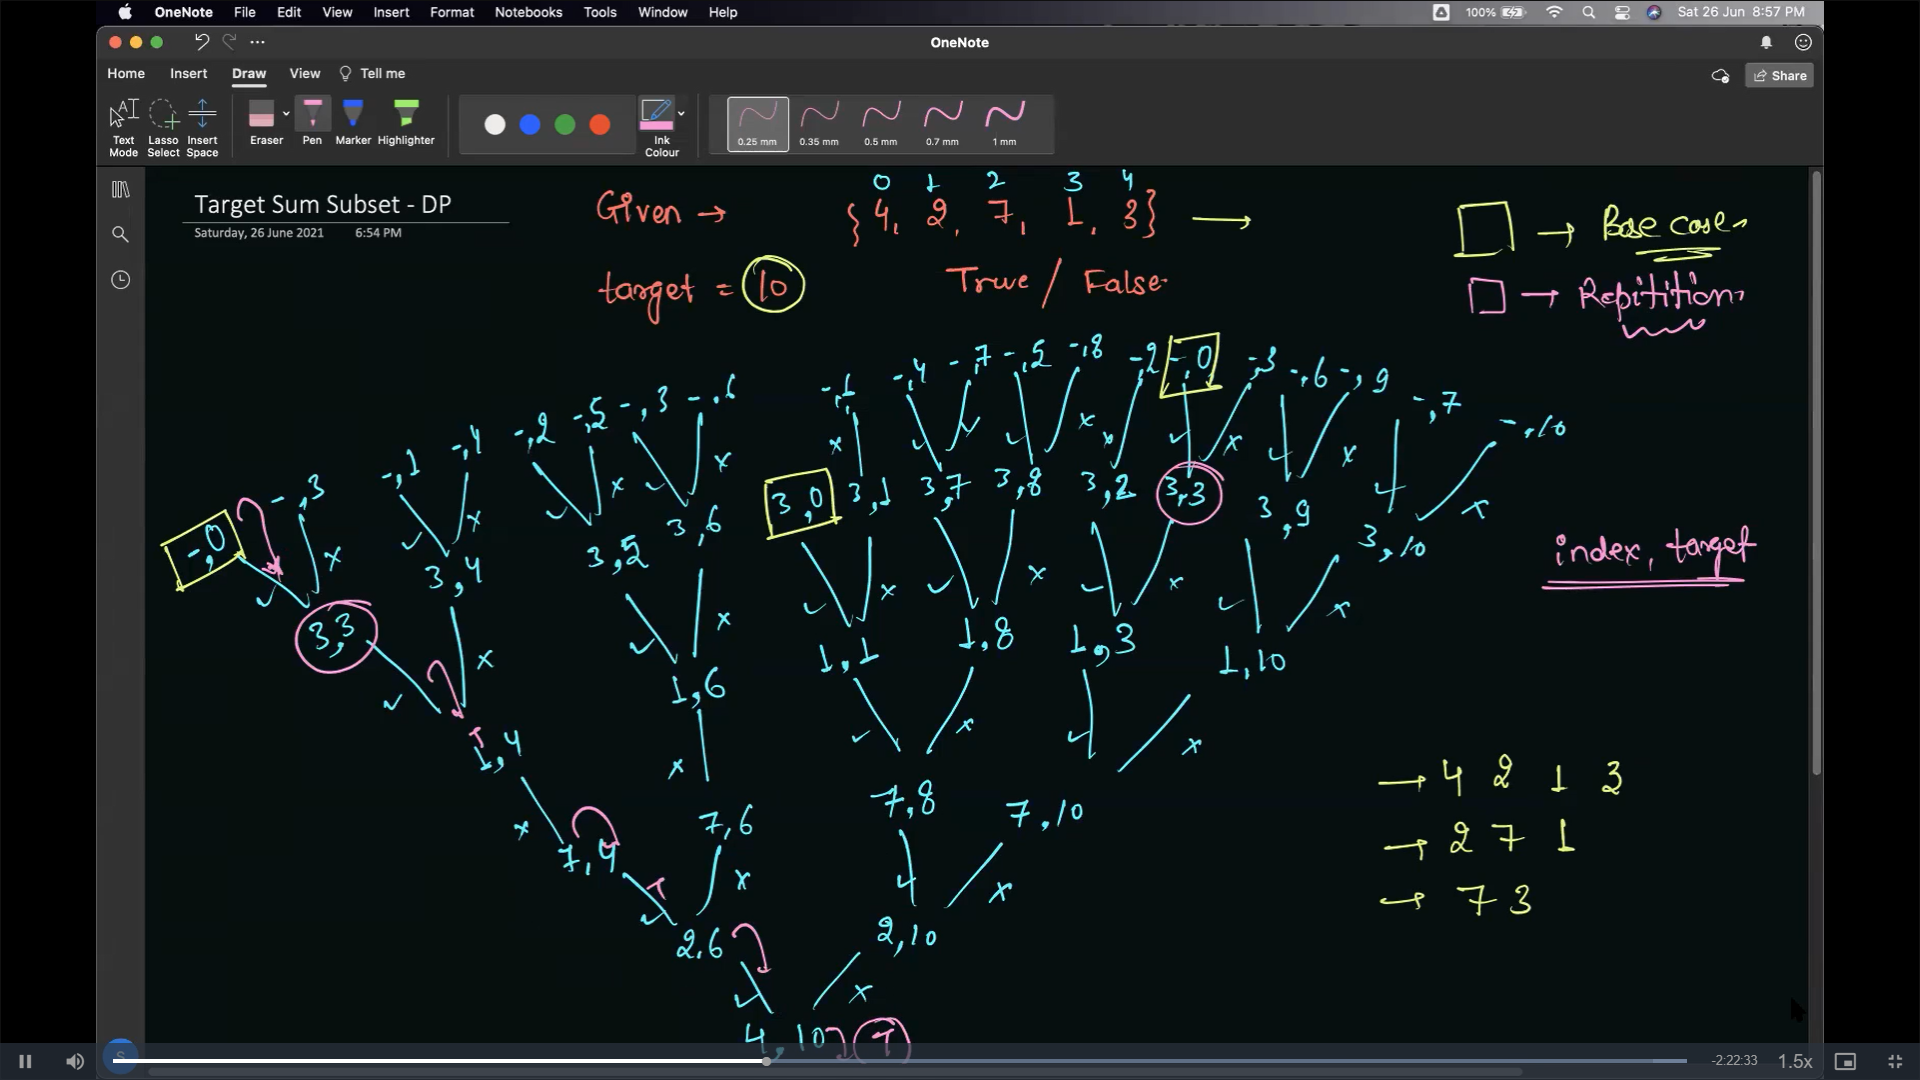 OneNote File Edit View Insert Format Notebooks Tools Window Help 100% Sat 26 Jun 8:57 PM
OneNote
Home Insert Draw View Tell me Share
Text Mode Lasso Select Insert Space Eraser Pen Marker Highlighter Ink Colour 0.25 mm 0.35 mm 0.5 mm 0.7 mm 1 mm
Target Sum Subset - DP
Saturday, 26 June 2021 6:54 PM
0 1 2 3 4
Given → {4, 2, 7, 1, 3} →
target = 10 True / False
→ Base case
→ Repitition
-,0 -,3 -,1 -,4 -,2 -,5 -,3 -,6 -,1 -,4 -,7 -,5 -,8 -,2 -,0 -,3 -,6 -,9 -,7 -,10
3,3 3,4 3,5 3,6 3,0 3,1 3,7 3,8 3,2 3,3 3,9 3,10
index, target
1,4 1,6 1,1 1,8 1,3 1,10
7,4 7,6 7,8 7,10
2,6 2,10
4,10 T
→ 4 2 1 3
→ 2 7 1
→ 7 3
-2:22:33 1.5x